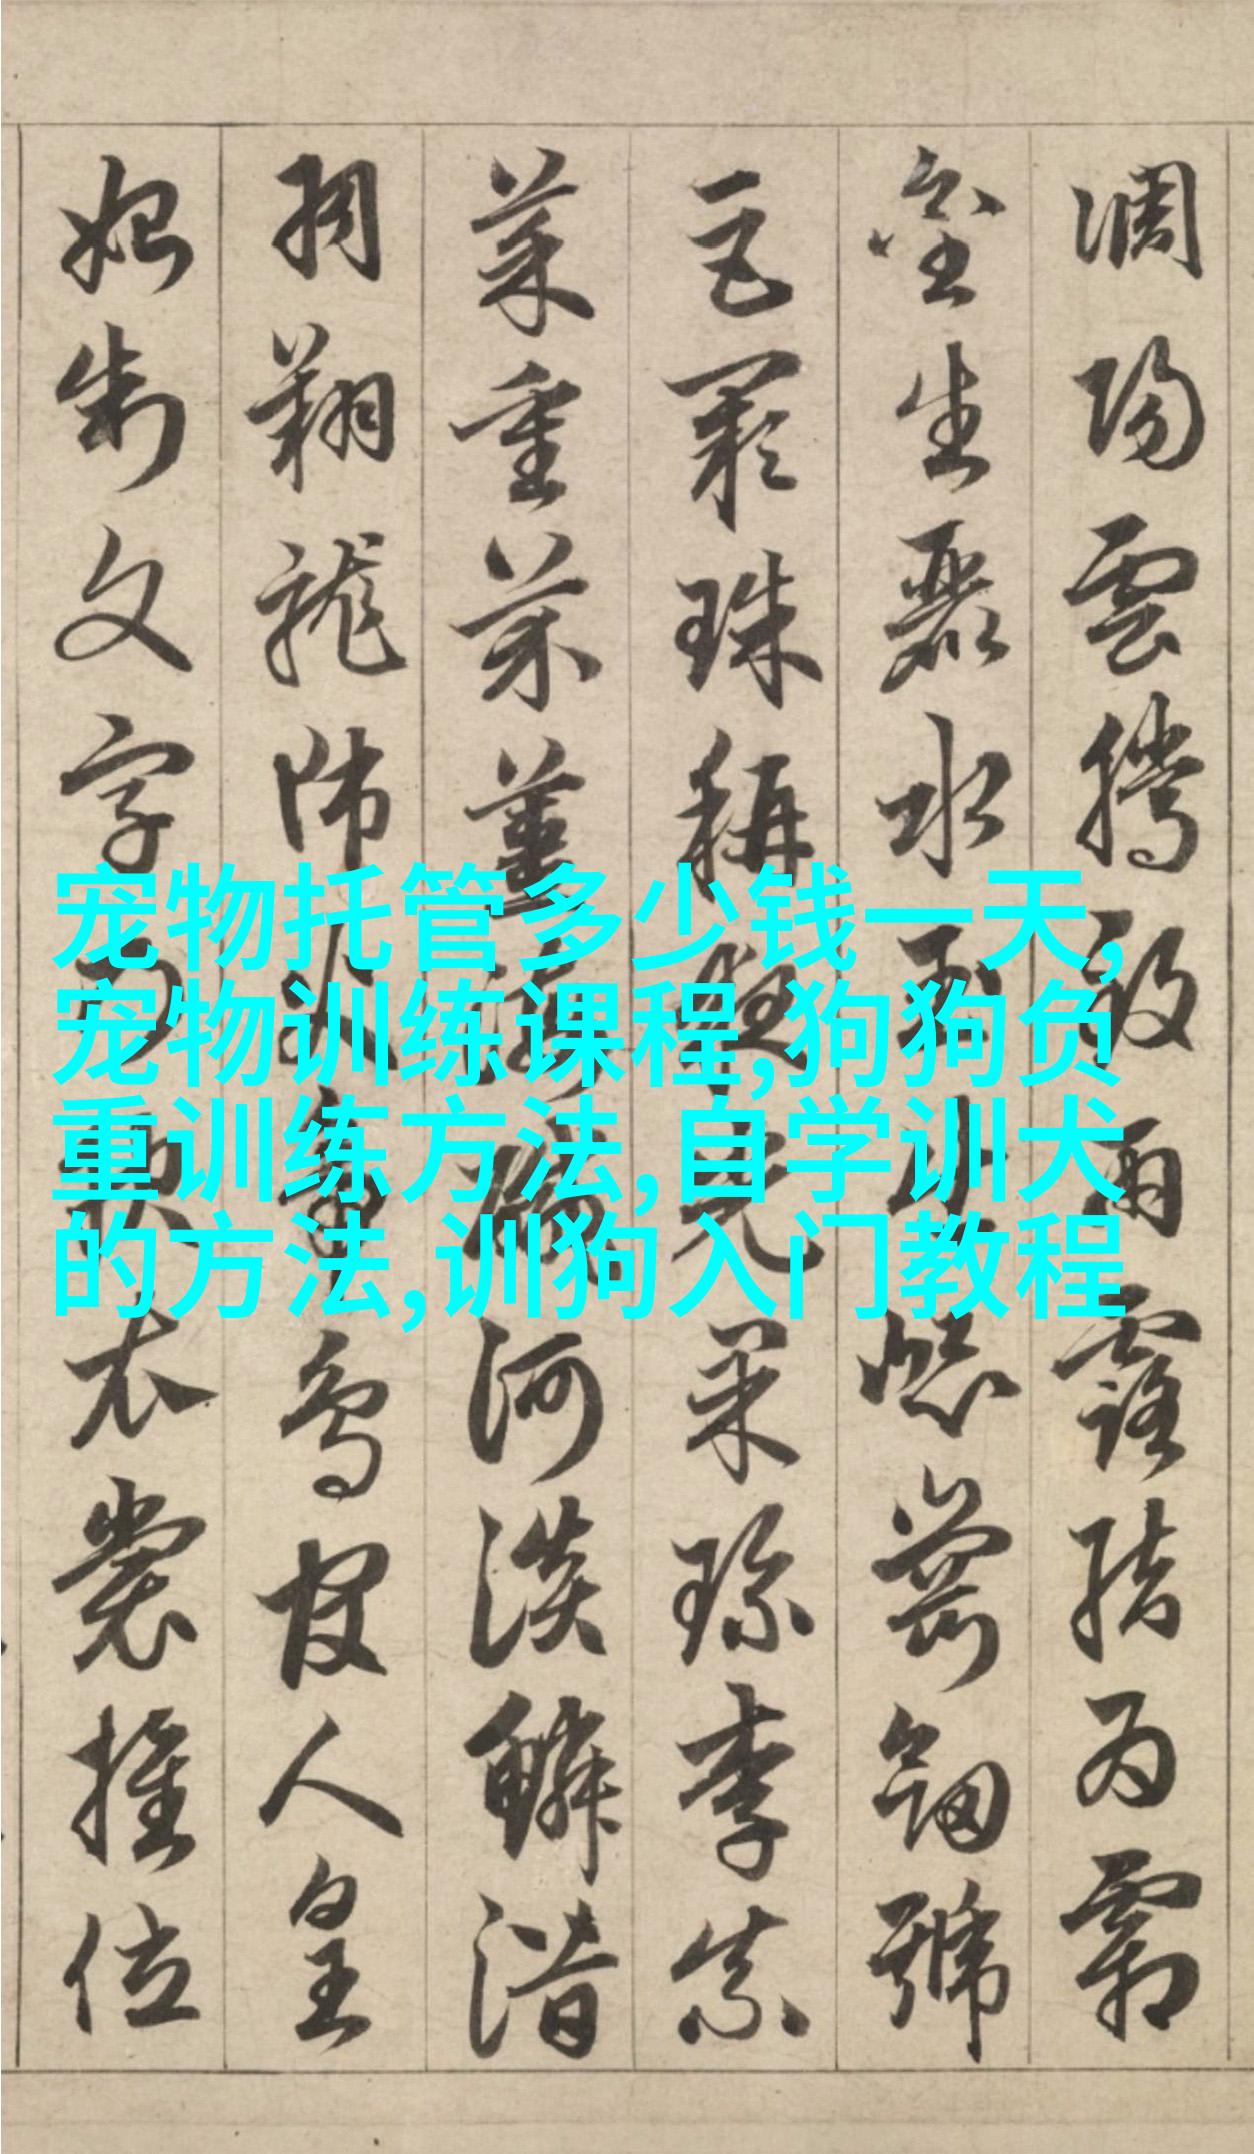 宠物托管多少钱一天,
宠物训练课程,狗狗负
重训练方法,自学训犬
的方法,训狗入门教程
調陽雲騰致雨露結為霜
金生麗水玉出崑崗劍號
巨闕珠稱夜光果珍李柰
菜重芥薑海鹹河淡鱗潛
羽翔龍師火帝鳥官人皇
始制文字乃服衣裳推位